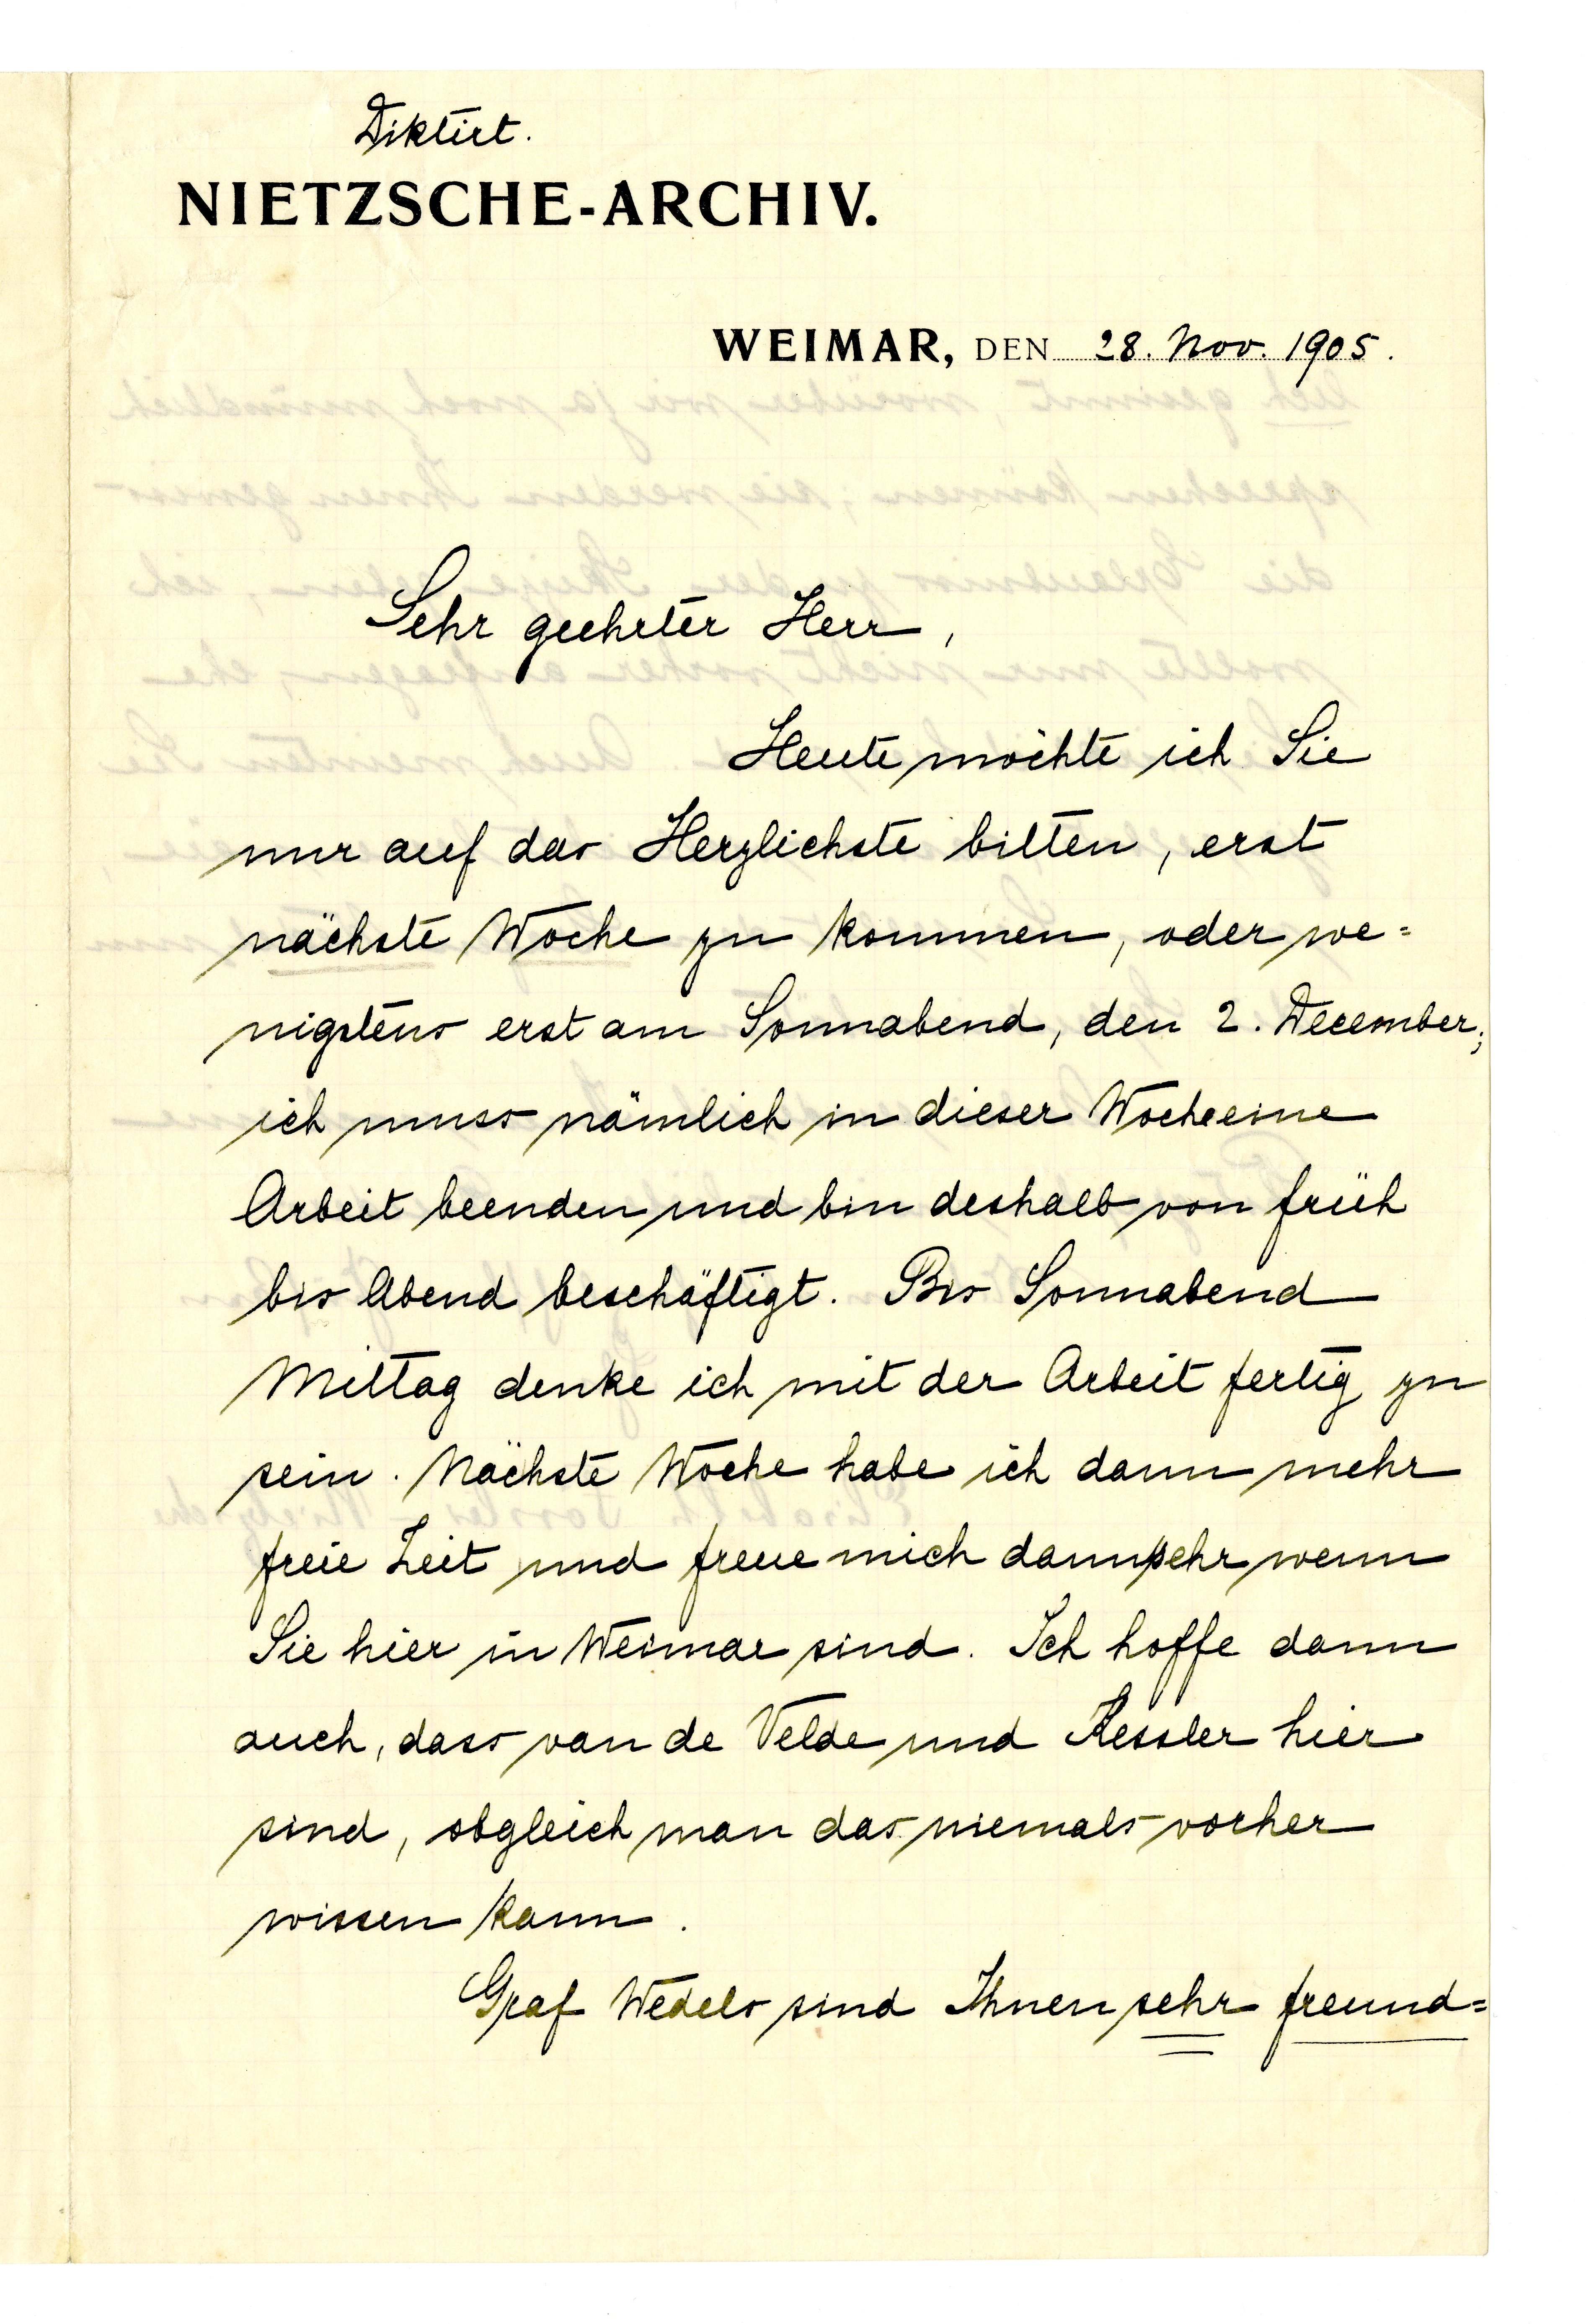 Diktirt.
NIETZSCHE-ARCHIV.
WEIMAR, DEN 28. Nov. 1905.
Sehr geehrter Herr,
Heute möchte ich Sie
nur auf das Herzlichste bitten, erst
nächste Woche zu kommen, oder we=
nigstens erst am Sonnabend, den 2. December;
ich muss nämlich in dieser Woche eine
Arbeit beenden und bin deshalb von früh
bis Abend beschäftigt. Bis Sonnabend
Mittag denke ich mit der Arbeit fertig zu
sein. Nächste Woche habe ich dann mehr
freie Zeit und freue mich dann sehr wenn
Sie hier in Weimar sind. Ich hoffe dann
auch, dass van de Velde und Kessler hier
sind, obgleich man das niemals vorher
wissen kann.
Graf Wedels sind Ihnen sehr freund=